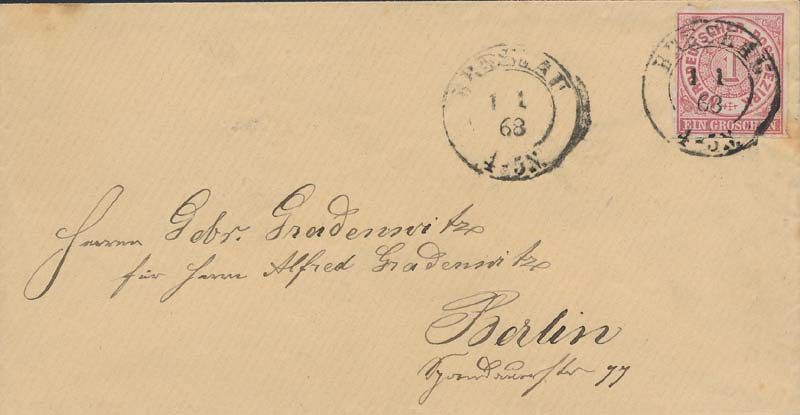 BRESLAU
1 1
68
4-5N.
NORDDEUTSCHER POSTBEZIRK
1
EIN GROSCHEN
BRESLAU
1 1
68
4-5N.
Herren Gebr. Gradenwitz
für Herrn Alfred Gradenwitz
Berlin
Spandauerstr 77